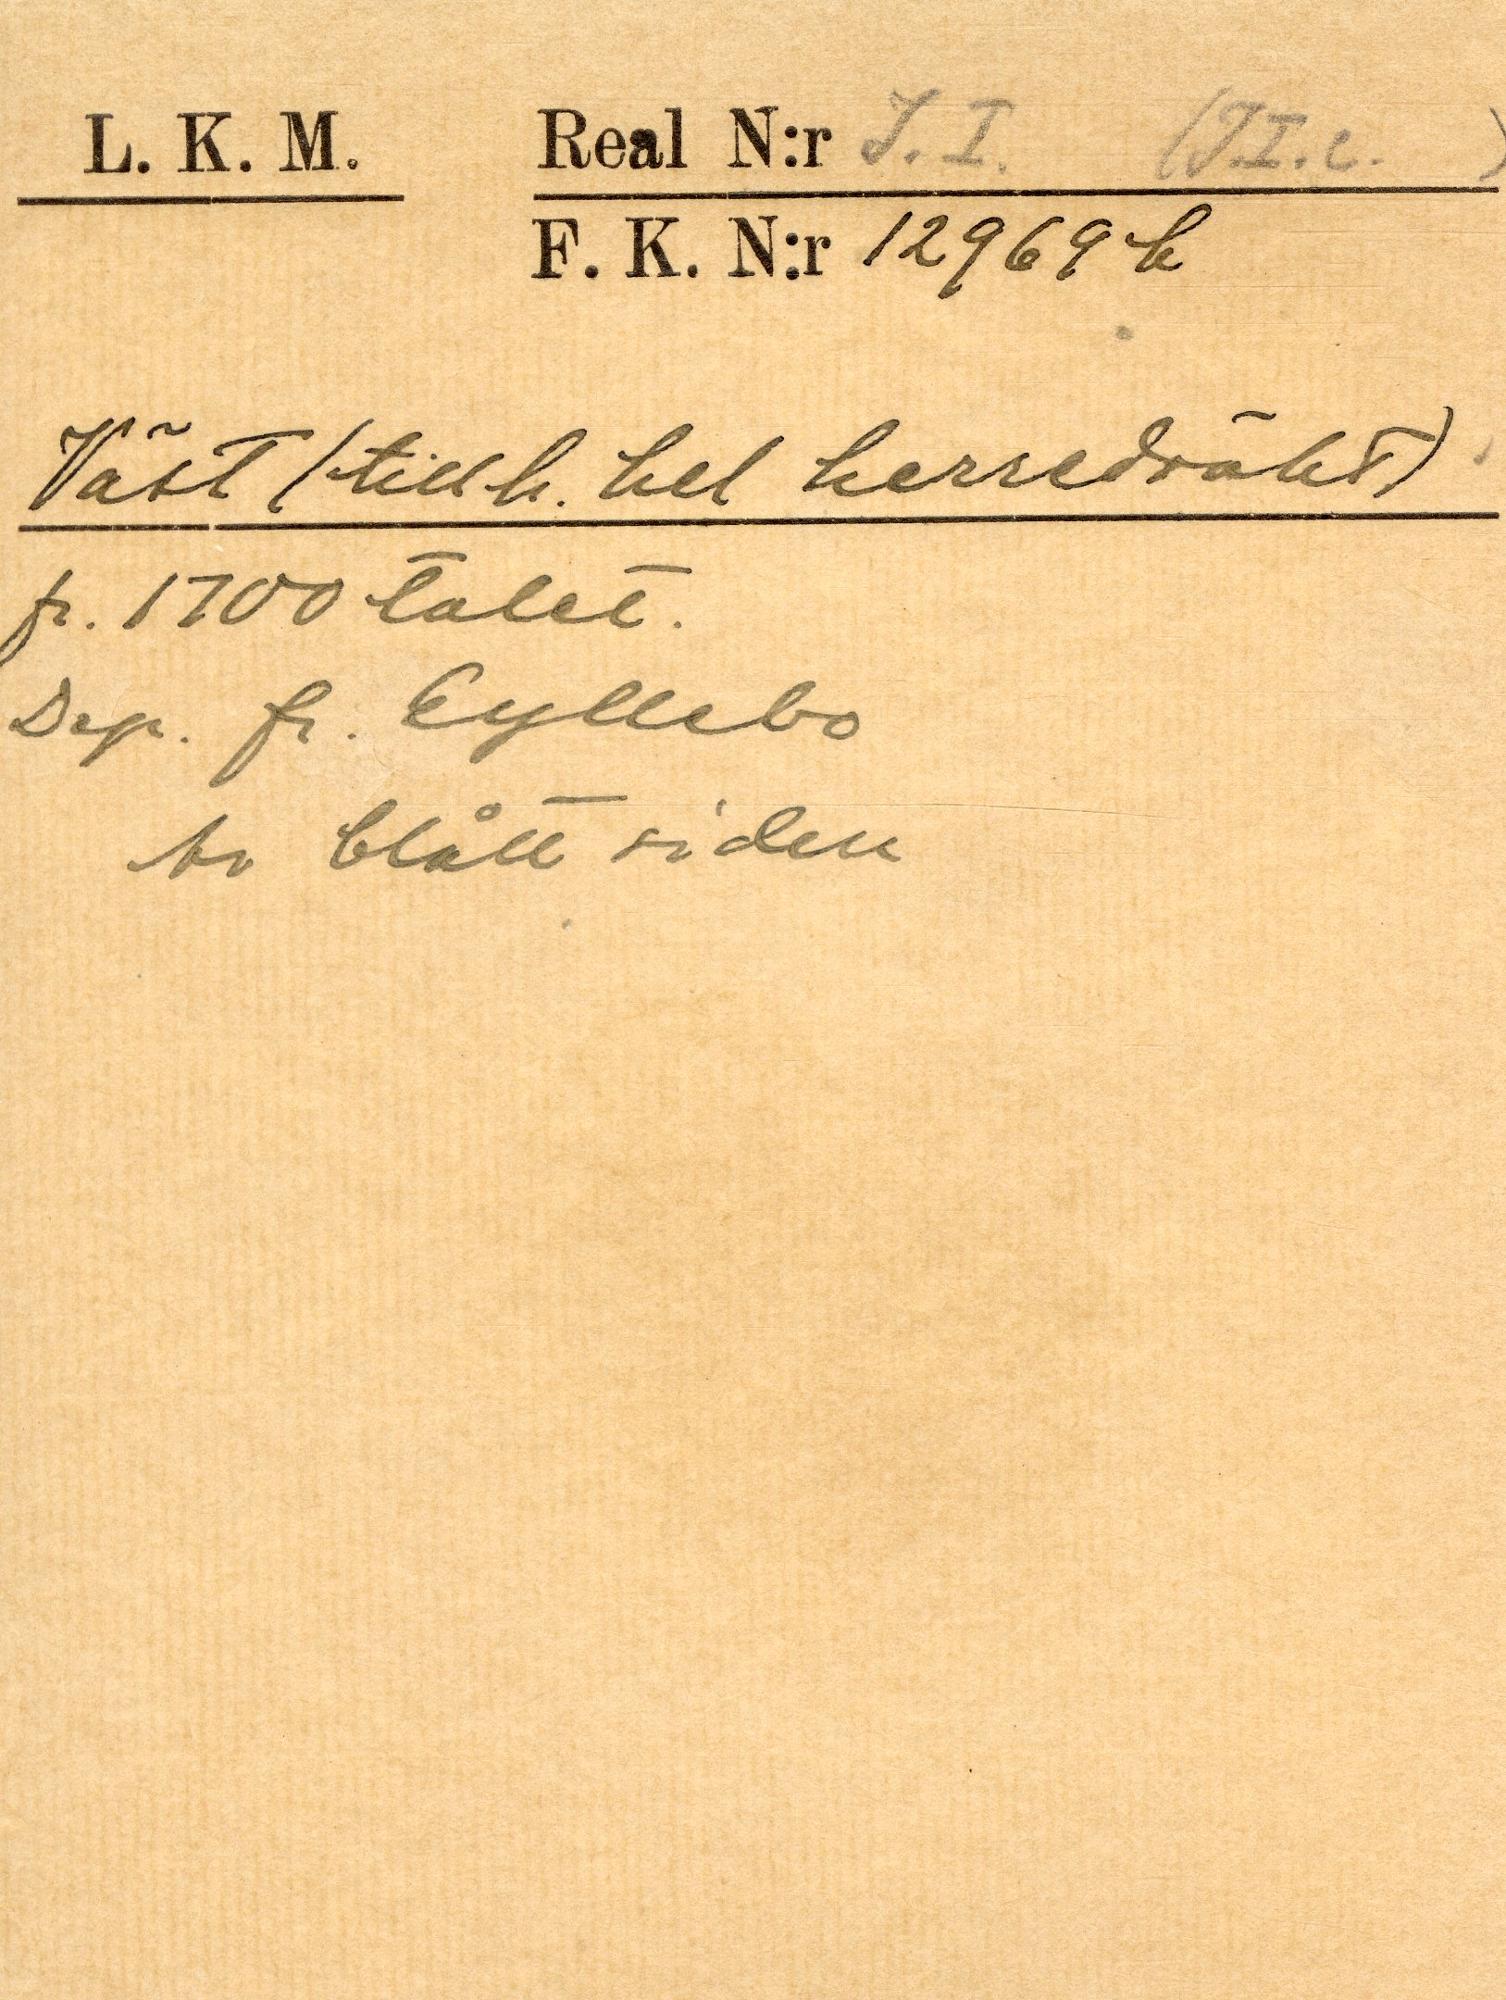 L. K. M. Real N:r J. I. (J.I.c. )
F. K. N:r 12969 b
Väst (tillh. hel herredräkt)
fr. 1700 talet.
Dep. fr. Gyllebo
Av blått siden